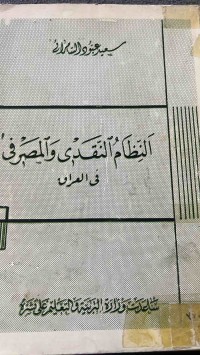 سعيد عبود السامرائي
النظام النقدي والمصرفي
في العراق
ساعدت وزارة التربية والتعليم على نشره